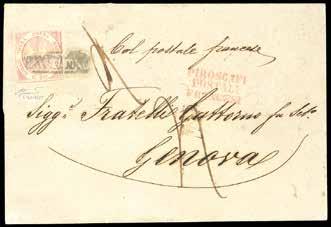 Col postale francese
PIROSCAFI
POSTALI
FRANCESI
Sigg.ri Fratelli Gattorno fu Seb.o
Genova